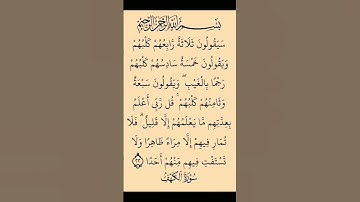 بِسْمِ اللَّهِ الرَّحْمَٰنِ الرَّحِيمِ
سَيَقُولُونَ ثَلَاثَةٌ رَّابِعُهُمْ كَلْبُهُمْ
وَيَقُولُونَ خَمْسَةٌ سَادِسُهُمْ كَلْبُهُمْ
رَجْمًا بِالْغَيْبِ ۖ وَيَقُولُونَ سَبْعَةٌ
وَثَامِنُهُمْ كَلْبُهُمْ ۚ قُل رَّبِّي أَعْلَمُ
بِعِدَّتِهِم مَّا يَعْلَمُهُمْ إِلَّا قَلِيلٌ ۗ فَلَا
تُمَارِ فِيهِمْ إِلَّا مِرَاءً ظَاهِرًا وَلَا
تَسْتَفْتِ فِيهِم مِّنْهُمْ أَحَدًا ﴿٢٢﴾
سُورَةُ الْكَهْفِ